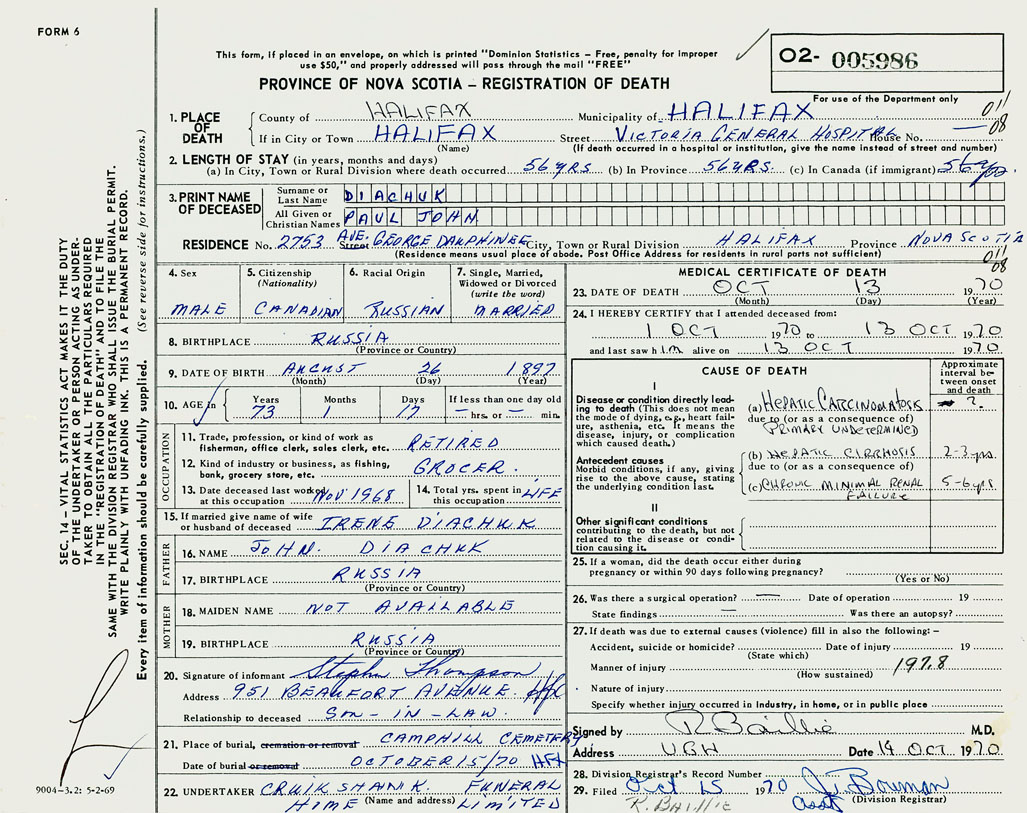 FORM 6
This form, if placed in an envelope, on which is printed "Dominion Statistics – Free, penalty for improper
use $50," and properly addressed will pass through the mail "FREE"
O2- 005986
PROVINCE OF NOVA SCOTIA – REGISTRATION OF DEATH
For use of the Department only
011
08
1. PLACE OF DEATH
County of HALIFAX Municipality of HALIFAX
If in City or Town HALIFAX Street VICTORIA GENERAL HOSPITAL House No. —
(Name) (If death occurred in a hospital or institution, give the name instead of street and number)
2. LENGTH OF STAY (in years, months and days)
(a) In City, Town or Rural Division where death occurred 56 YRS. (b) In Province 56 YRS. (c) In Canada (if immigrant) 56 yrs
3. PRINT NAME OF DECEASED
Surname or Last Name DIACHUK
All Given or Christian Names PAUL JOHN
RESIDENCE No. 2753 Street AVE. GEORGE DAUPHINEE City, Town or Rural Division HALIFAX Province NOVA SCOTIA
(Residence means usual place of abode. Post Office Address for residents in rural parts not sufficient)
011
08
4. Sex MALE
5. Citizenship (Nationality) CANADIAN
6. Racial Origin RUSSIAN
7. Single, Married, Widowed or Divorced (write the word) MARRIED
8. BIRTHPLACE RUSSIA
(Province or Country)
9. DATE OF BIRTH AUGUST 26 1897
(Month) (Day) (Year)
10. AGE in Years 73 Months 1 Days 17 If less than one day old — hrs. or — min.
OCCUPATION
11. Trade, profession, or kind of work as
fisherman, office clerk, sales clerk, etc. RETIRED
12. Kind of industry or business, as fishing,
bank, grocery store, etc. GROCER.
13. Date deceased last worked
at this occupation NOV 1968
14. Total yrs. spent in
this occupation LIFE
15. If married give name of wife
or husband of deceased IRENE DIACHUK
FATHER
16. NAME JOHN. DIACHUK
17. BIRTHPLACE RUSSIA
(Province or Country)
MOTHER
18. MAIDEN NAME NOT AVAILABLE
19. BIRTHPLACE RUSSIA
(Province or Country)
20. Signature of informant Stephen Thompson
Address 951 BEAUFORT AVENUE. Hfx.
Relationship to deceased SON-IN-LAW.
21. Place of burial, cremation or removal CAMPHILL CEMETERY
Date of burial or removal OCTOBER 15/70 HFX
22. UNDERTAKER CRUIKSHANK. FUNERAL
HOME (Name and address) LIMITED
MEDICAL CERTIFICATE OF DEATH
23. DATE OF DEATH OCT 13 1970
(Month) (Day) (Year)
24. I HEREBY CERTIFY that I attended deceased from:
1 OCT 1970 to 13 OCT 1970
and last saw h im alive on 13 OCT 1970
CAUSE OF DEATH
Approximate interval between onset and death
I
Disease or condition directly leading to death (This does not mean the mode of dying, e.g., heart failure, asthenia, etc. It means the disease, injury, or complication which caused death.)
(a) HEPATIC CARCINOMATOSIS ?
due to (or as a consequence of)
PRIMARY UNDETERMINED
Antecedent causes
Morbid conditions, if any, giving rise to the above cause, stating the underlying condition last.
(b) HEPATIC CIRRHOSIS 2-3 yrs.
due to (or as a consequence of)
(c) CHRONIC MINIMAL RENAL 5-6 yrs
FAILURE
II
Other significant conditions
contributing to the death, but not related to the disease or condition causing it.
25. If a woman, did the death occur either during
pregnancy or within 90 days following pregnancy?
(Yes or No)
26. Was there a surgical operation? — Date of operation 19
State findings — Was there an autopsy?
27. If death was due to external causes (violence) fill in also the following: –
Accident, suicide or homicide? Date of injury 19
(State which)
Manner of injury 197.8
(How sustained)
Nature of injury
Specify whether injury occurred in Industry, in home, or in public place
Signed by R Baillie M.D.
Address V.G.H Date 14 OCT. 1970
28. Division Registrar's Record Number
29. Filed Oct 15 1970 J. Bowman
R. BAILLIE asst (Division Registrar)
SEC. 14 – VITAL STATISTICS ACT MAKES IT THE DUTY
OF THE UNDERTAKER OR PERSON ACTING AS UNDERTAKER TO OBTAIN ALL THE PARTICULARS REQUIRED
IN THE "REGISTRATION OF DEATH" AND TO FILE THE
SAME WITH THE DIVISION REGISTRAR WHO SHALL ISSUE THE BURIAL PERMIT.
WRITE PLAINLY WITH UNFADING INK. THIS IS A PERMANENT RECORD.
Every item of information should be carefully supplied. (See reverse side for instructions.)
9004-3.2: 5-2-69